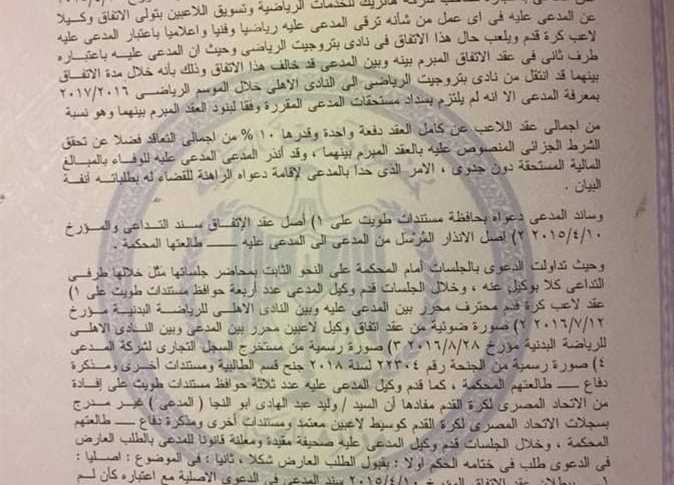 شركة هاتريك للخدمات الرياضية وتسويق اللاعبين بتولى الاتفاق وكيلا
عن المدعى عليه فى اى عمل من شأنه ترقى المدعى عليه رياضيا وفنيا واعلاميا باعتبار المدعى عليه
لاعب كرة قدم ويلعب حال هذا الاتفاق فى نادى بتروجيت الرياضي وحيث ان المدعى عليه باعتباره
طرف ثانى فى عقد الاتفاق المبرم بينه وبين المدعى قد خالف هذا الاتفاق وذلك بأنه خلال مدة الاتفاق
بينهما قد انتقل من نادى بتروجيت الرياضى الى النادى الاهلى خلال الموسم الرياضى ٢٠١٧/٢٠١٦
بمعرفة المدعى الا انه لم يلتزم بسداد مستحقات المدعى المقررة وفقا لبنود العقد المبرم بينهما وهو نسبة
من اجمالى عقد اللاعب عن كامل العقد دفعة واحدة وقدرها ١٠ % من اجمالى التعاقد فضلا عن تحقق
الشرط الجزائى المنصوص عليه بالعقد المبرم بينهما ، وقد أنذر المدعى المدعى عليه للوفاء بالمبالغ
المالية المستحقة دون جدوى ، الامر الذى حدا بالمدعى لإقامة دعواه الراهنة للقضاء له بطلباته آنفة
البيان .
وساند المدعى دعواه بحافظة مستندات طويت على ١) أصل عقد الإتفاق سند التداعى والمؤرخ
٢٠١٥/٤/١٠ ٢) اصل الانذار المُرسَل من المدعى الى المدعى عليه ـــــ طالعتها المحكمة .
وحيث تداولت الدعوى بالجلسات أمام المحكمة على النحو الثابت بمحاضر جلساتها مثل خلالها طرفى
التداعى كلا بوكيل عنه ، وخلال الجلسات قدم وكيل المدعى عدد أربعة حوافظ مستندات طويت على ١)
عقد لاعب كرة قدم محترف محرر بين المدعى عليه وبين النادى الاهلى للرياضة البدنية مؤرخ
٢٠١٦/٧/١٢ ٢) صورة ضوئية من عقد اتفاق وكيل لاعبين محرر بين المدعى وبين النادى الاهلى
للرياضة البدنية مؤرخ ٢٠١٦/٨/٢٨ ٣) صورة رسمية من مستخرج السجل التجارى لشركة المدعى
٤) صورة رسمية من الجنحة رقم ٢٢٣٠٤ لسنة ٢٠١٨ جنح قسم الطالبية ومستندات أخرى ومذكرة
دفاع ـــــ طالعتهم المحكمة ، كما قدم وكيل المدعى عليه عدد ثلاثة حوافظ مستندات طويت على إفادة
من الاتحاد المصرى لكرة القدم مفادها أن السيد / وليد عبد الهادى ابو النجا ( المدعى ) غير مدرج
بسجلات الاتحاد المصرى لكرة القدم كوسيط لاعبين معتمد ومستندات أخرى ومذكرة دفاع ـــــ طالعتهم
المحكمة ، وخلال الجلسات قدم وكيل المدعى عليه صحيفة مقيدة ومعلنة قانونا للمدعى بالطلب العارض
فى الدعوى طلب فى ختامه الحكم اولا : بقبول الطلب العارض شكلا ، ثانيا : فى الموضوع : اصليا :
١ـ ببطلان عقد الاتفاق المؤرخ ٢٠١٥/٤/١٠ سند المدعى فى الدعوى الاصلية مع اعتباره كأن لم